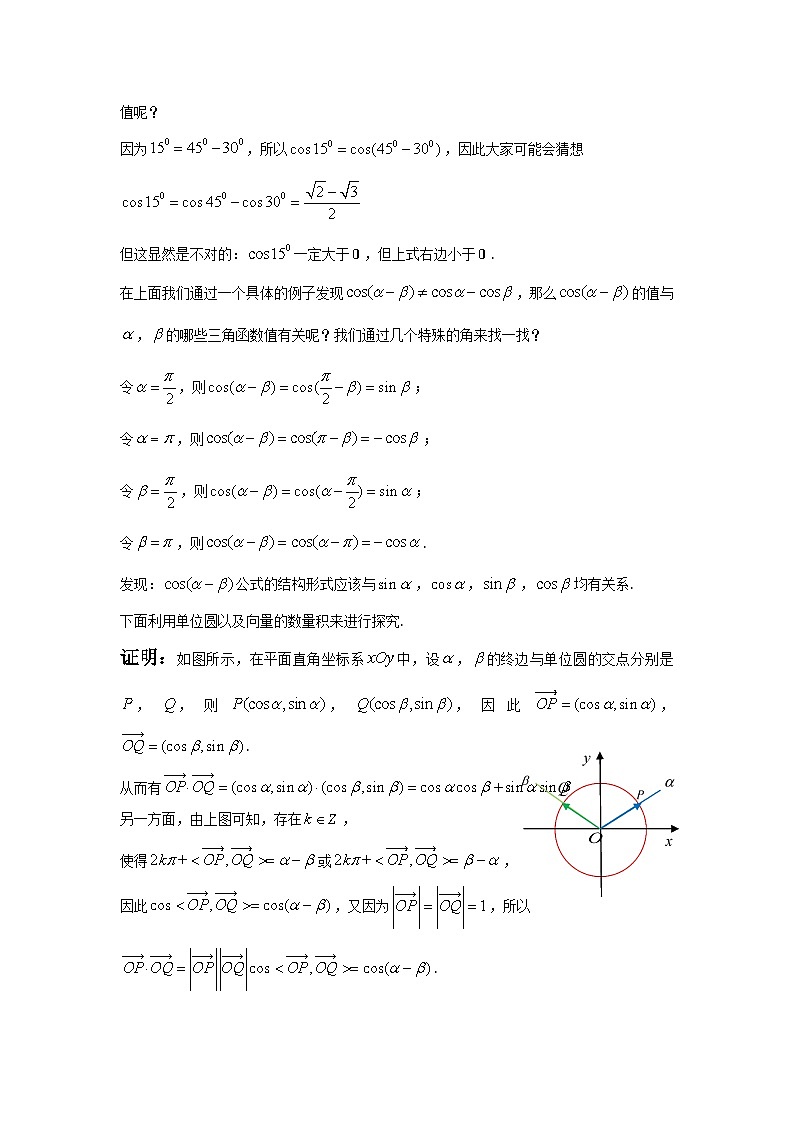 值呢？
因为 15⁰ = 45⁰ − 30⁰ ，所以 cos15⁰ = cos(45⁰ − 30⁰) ，因此大家可能会猜想
cos15⁰ = cos45⁰ − cos30⁰ = (√2 − √3)/2
但这显然是不对的：cos15⁰ 一定大于 0 ，但上式右边小于 0 .
在上面我们通过一个具体的例子发现 cos(α − β) ≠ cosα − cosβ ，那么 cos(α − β) 的值与
α ，β 的哪些三角函数值有关呢？我们通过几个特殊的角来找一找？
令 α = π/2 ，则 cos(α − β) = cos(π/2 − β) = sin β ；
令 α = π ，则 cos(α − β) = cos(π − β) = − cosβ ；
令 β = π/2 ，则 cos(α − β) = cos(α − π/2) = sin α ；
令 β = π ，则 cos(α − β) = cos(α − π) = − cosα .
发现：cos(α − β) 公式的结构形式应该与 sin α ，cosα ，sin β ，cosβ 均有关系.
下面利用单位圆以及向量的数量积来进行探究.
证明：如图所示，在平面直角坐标系 xOy 中，设 α ，β 的终边与单位圆的交点分别是
P ， Q ， 则 P(cosα,sinα) ， Q(cosβ,sinβ) ， 因 此 \overrightarrow{OP} = (cosα,sinα) ，
\overrightarrow{OQ} = (cosβ,sinβ) .
从而有 \overrightarrow{OP}·\overrightarrow{OQ} = (cosα,sinα)·(cosβ,sinβ) = cosαcosβ + sinαsinβ
另一方面，由上图可知，存在 k ∈ Z ，
使得 2kπ + < \overrightarrow{OP},\overrightarrow{OQ} >= α − β 或 2kπ + < \overrightarrow{OP},\overrightarrow{OQ} >= β − α ，
因此 cos < \overrightarrow{OP},\overrightarrow{OQ} >= cos(α − β) ，又因为 |\overrightarrow{OP}| = |\overrightarrow{OQ}| = 1 ，所以
\overrightarrow{OP}·\overrightarrow{OQ} = |\overrightarrow{OP}||\overrightarrow{OQ}| cos < \overrightarrow{OP},\overrightarrow{OQ} >= cos(α − β) .
y
β
Q
P
α
O
x